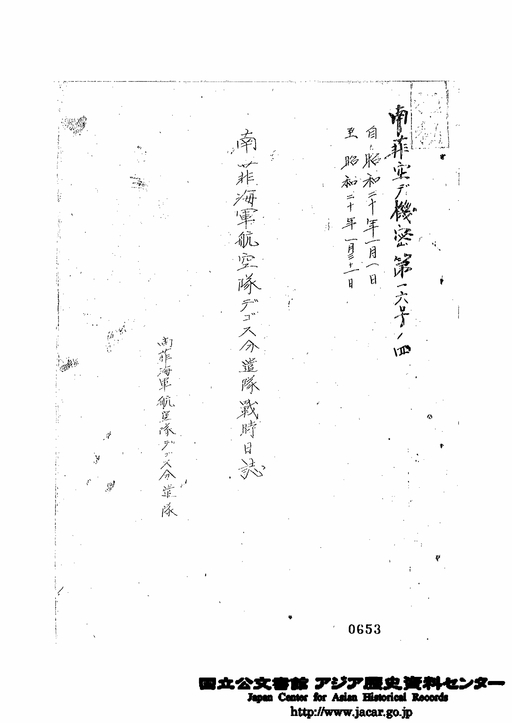 南菲空デ機密第一六号ノ四
自昭和二十年一月一日
至昭和二十年一月三十一日
南菲海軍航空隊デゴス分遣隊戦時日誌
南菲海軍航空隊デゴス分遣隊
0653
国立公文書館 アジア歴史資料センター
Japan Center for Asian Historical Records
http://www.jacar.go.jp